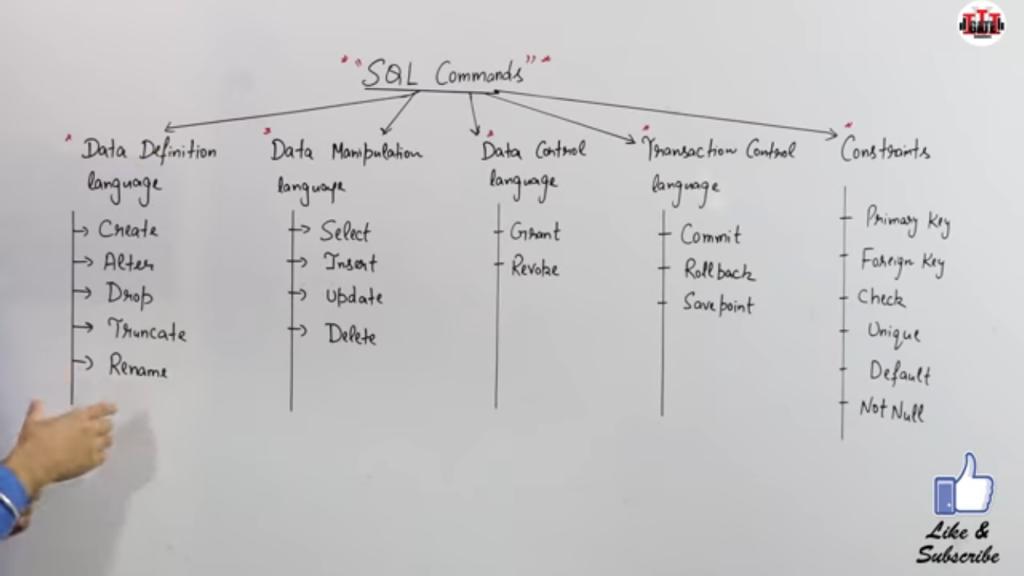 GATE
" SQL Commands "
Data Definition
language
Create
Alter
Drop
Truncate
Rename
Data Manipulation
language
Select
Insert
Update
Delete
Data Control
language
Grant
Revoke
Transaction Control
language
Commit
Rollback
Savepoint
Constraints
Primary Key
Foreign Key
Check
Unique
Default
Not Null
Like &
Subscribe